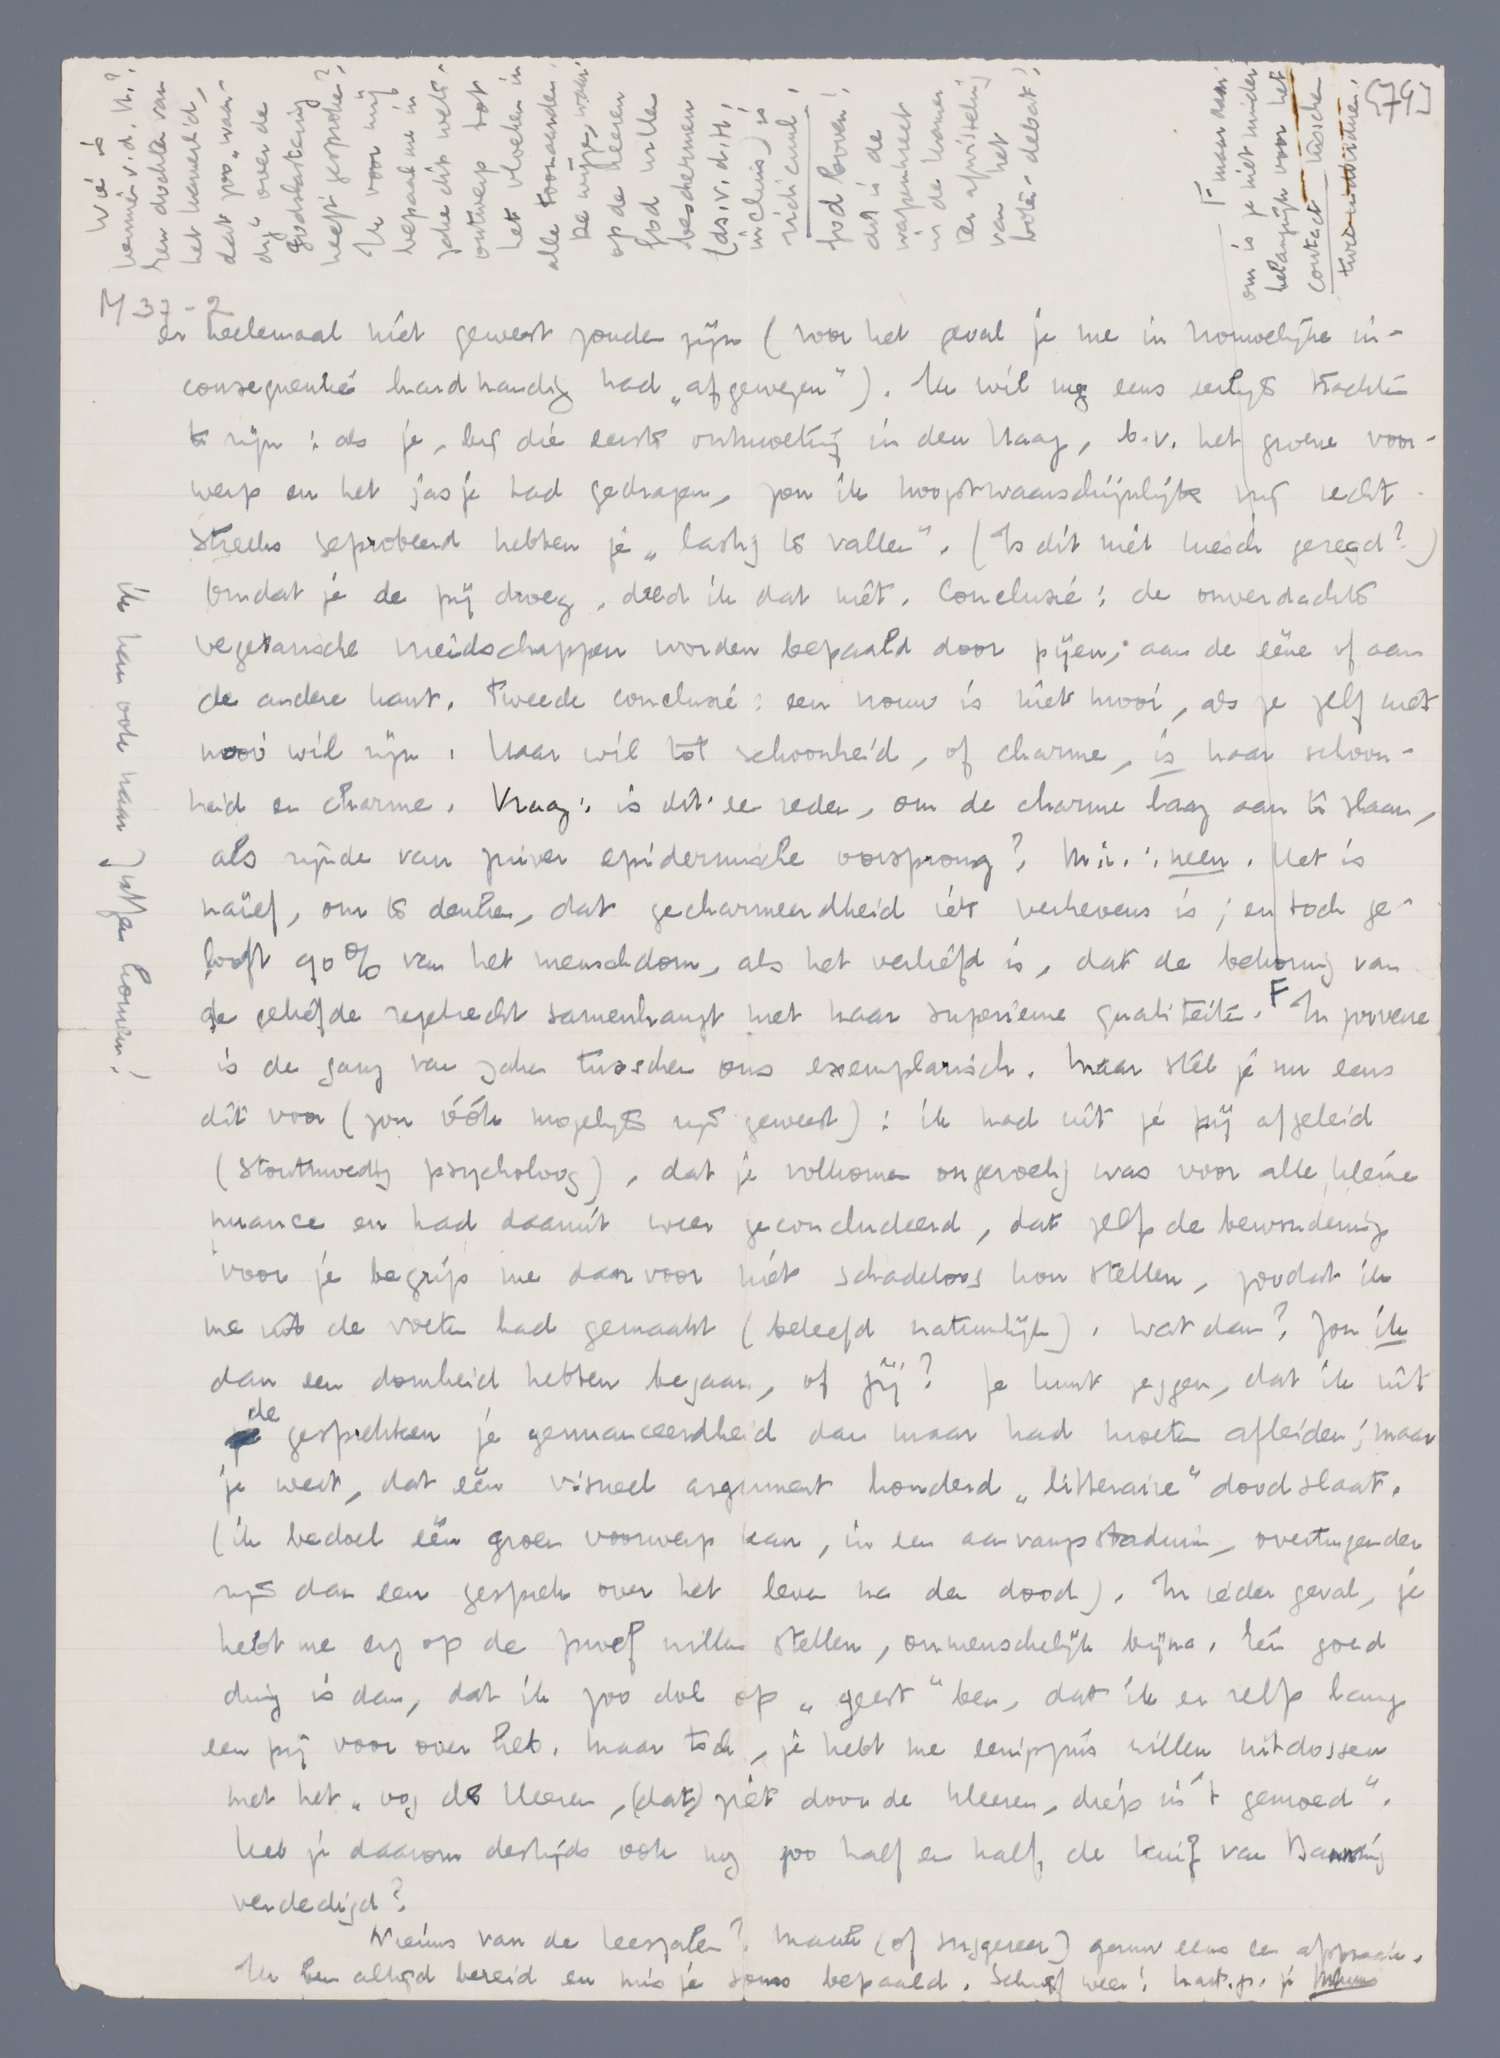 [79]
M 32-2
er heelemaal niet geweest zouden zijn (voor het geval je me in vrouwelijke in-
consequentie hardhandig had „afgewezen"). Ik wil nog eens eerlijk trachten
te zijn: als je, bij die eerste ontmoeting in den Haag, b.v. het groene voor-
werp en het jasje had gedragen, zou ik hoogstwaarschijnlijk nog recht
streeks geprobeerd hebben je „lastig te vallen". (Is dit niet kiesch gezegd?)
Omdat je de pij droeg, deed ik dat niet. Conclusie: de onverdachte
vegetarische vriendschappen worden bepaald door pijen, aan de eene of aan
de andere kant. Tweede conclusie: een vrouw is niet mooi, als ze zelf niet
mooi wil zijn. Haar wil tot schoonheid, of charme, is haar schoon-
heid en charme. Vraag: is dit een reden, om de charme laag aan te slaan,
als zijnde van zuiver epidermische oorsprong? M.i.: neen. Het is
naïef, om te denken, dat gecharmeerdheid iets verhevens is; en toch ge-
looft 90% van het menschdom, als het verliefd is, dat de bekoring van
de geliefde regelrecht samenhangt met haar superieure qualiteiten. F In zooverre
is de gang van zaken tusschen ons exemplarisch. Maar stel je nu eens
dit voor (zou óók mogelijk zijn geweest): ik had uit je pij afgeleid
(stoutmoedig psycholoog), dat je volkomen ongevoelig was voor alle kleine
nuance en had daaruit weer geconcludeerd, dat zelfs de bewondering
voor je begrip me daarvoor niet schadeloos kon stellen, zoodat ik
me uit de voeten had gemaakt (beleefd natuurlijk). Wat dan? Zou ik
dan een domheid hebben begaan, of jij? Je kunt zeggen, dat ik uit
de gesprekken je genuanceerdheid dan maar had moeten afleiden; maar
je weet, dat één visueel argument honderd „litteraire" doodslaat.
(ik bedoel één groen voorwerp kan, in een aanvangsstadium, overtuigender
zijn dan een gesprek over het leven na den dood). In ieder geval, je
hebt me erg op de proef willen stellen, onmenschelijk bijna. Eén goed
ding is dan, dat ik zoo dol op „geest" ben, dat ik er zelfs lang
een pij voor over heb. Maar toch, je hebt me eenigszins willen uitdossen
met het „oog des Heeren, (dat) ziet door de kleeren, diep in 't gemoed".
Heb je daarom destijds ook nog zoo half en half, de kuif van Banning
verdedigd?
Nieuws van de leeszalen? Maak (of suggereer) gauw eens een afspraak.
Ik ben altijd bereid en mis je soms bepaald. Schrijf weer! hart. gr. je Menno
F maar daar-
om is je niet minder
belangrijk voor het
contact tusschen
twee individuen!
Wie is
Hermien v.d. H.?
Een dochter van
het kamerlid,
dat zoo „waar-
dig" over de
godslastering
heeft gesproken?
Ik voor mij
bepaal me in
zake dit wets-
ontwerp tot
het vloeken in
alle toonaarden.
De wijze, waar-
op de heeren
god willen
beschermen
(ds. v. d. H.
incluis) is
ridicuul!
God boven!
dit is de
wapenkreet
in de kamer
ter afwisseling
van het
boter-debat!
ik kan ook naar Zutfen komen!